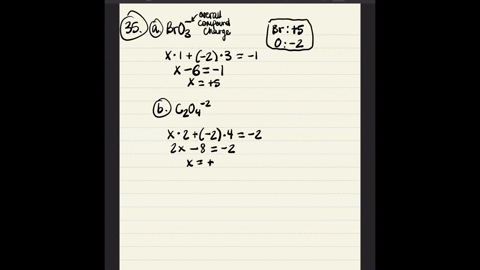 35. a. BrO₃⁻ overall compound charge
Br: +5
O: -2
x·1+(-2)·3 = -1
x-6=-1
x=+5
b. C₂O₄⁻²
x·2+(-2)·4=-2
2x-8=-2
x=+